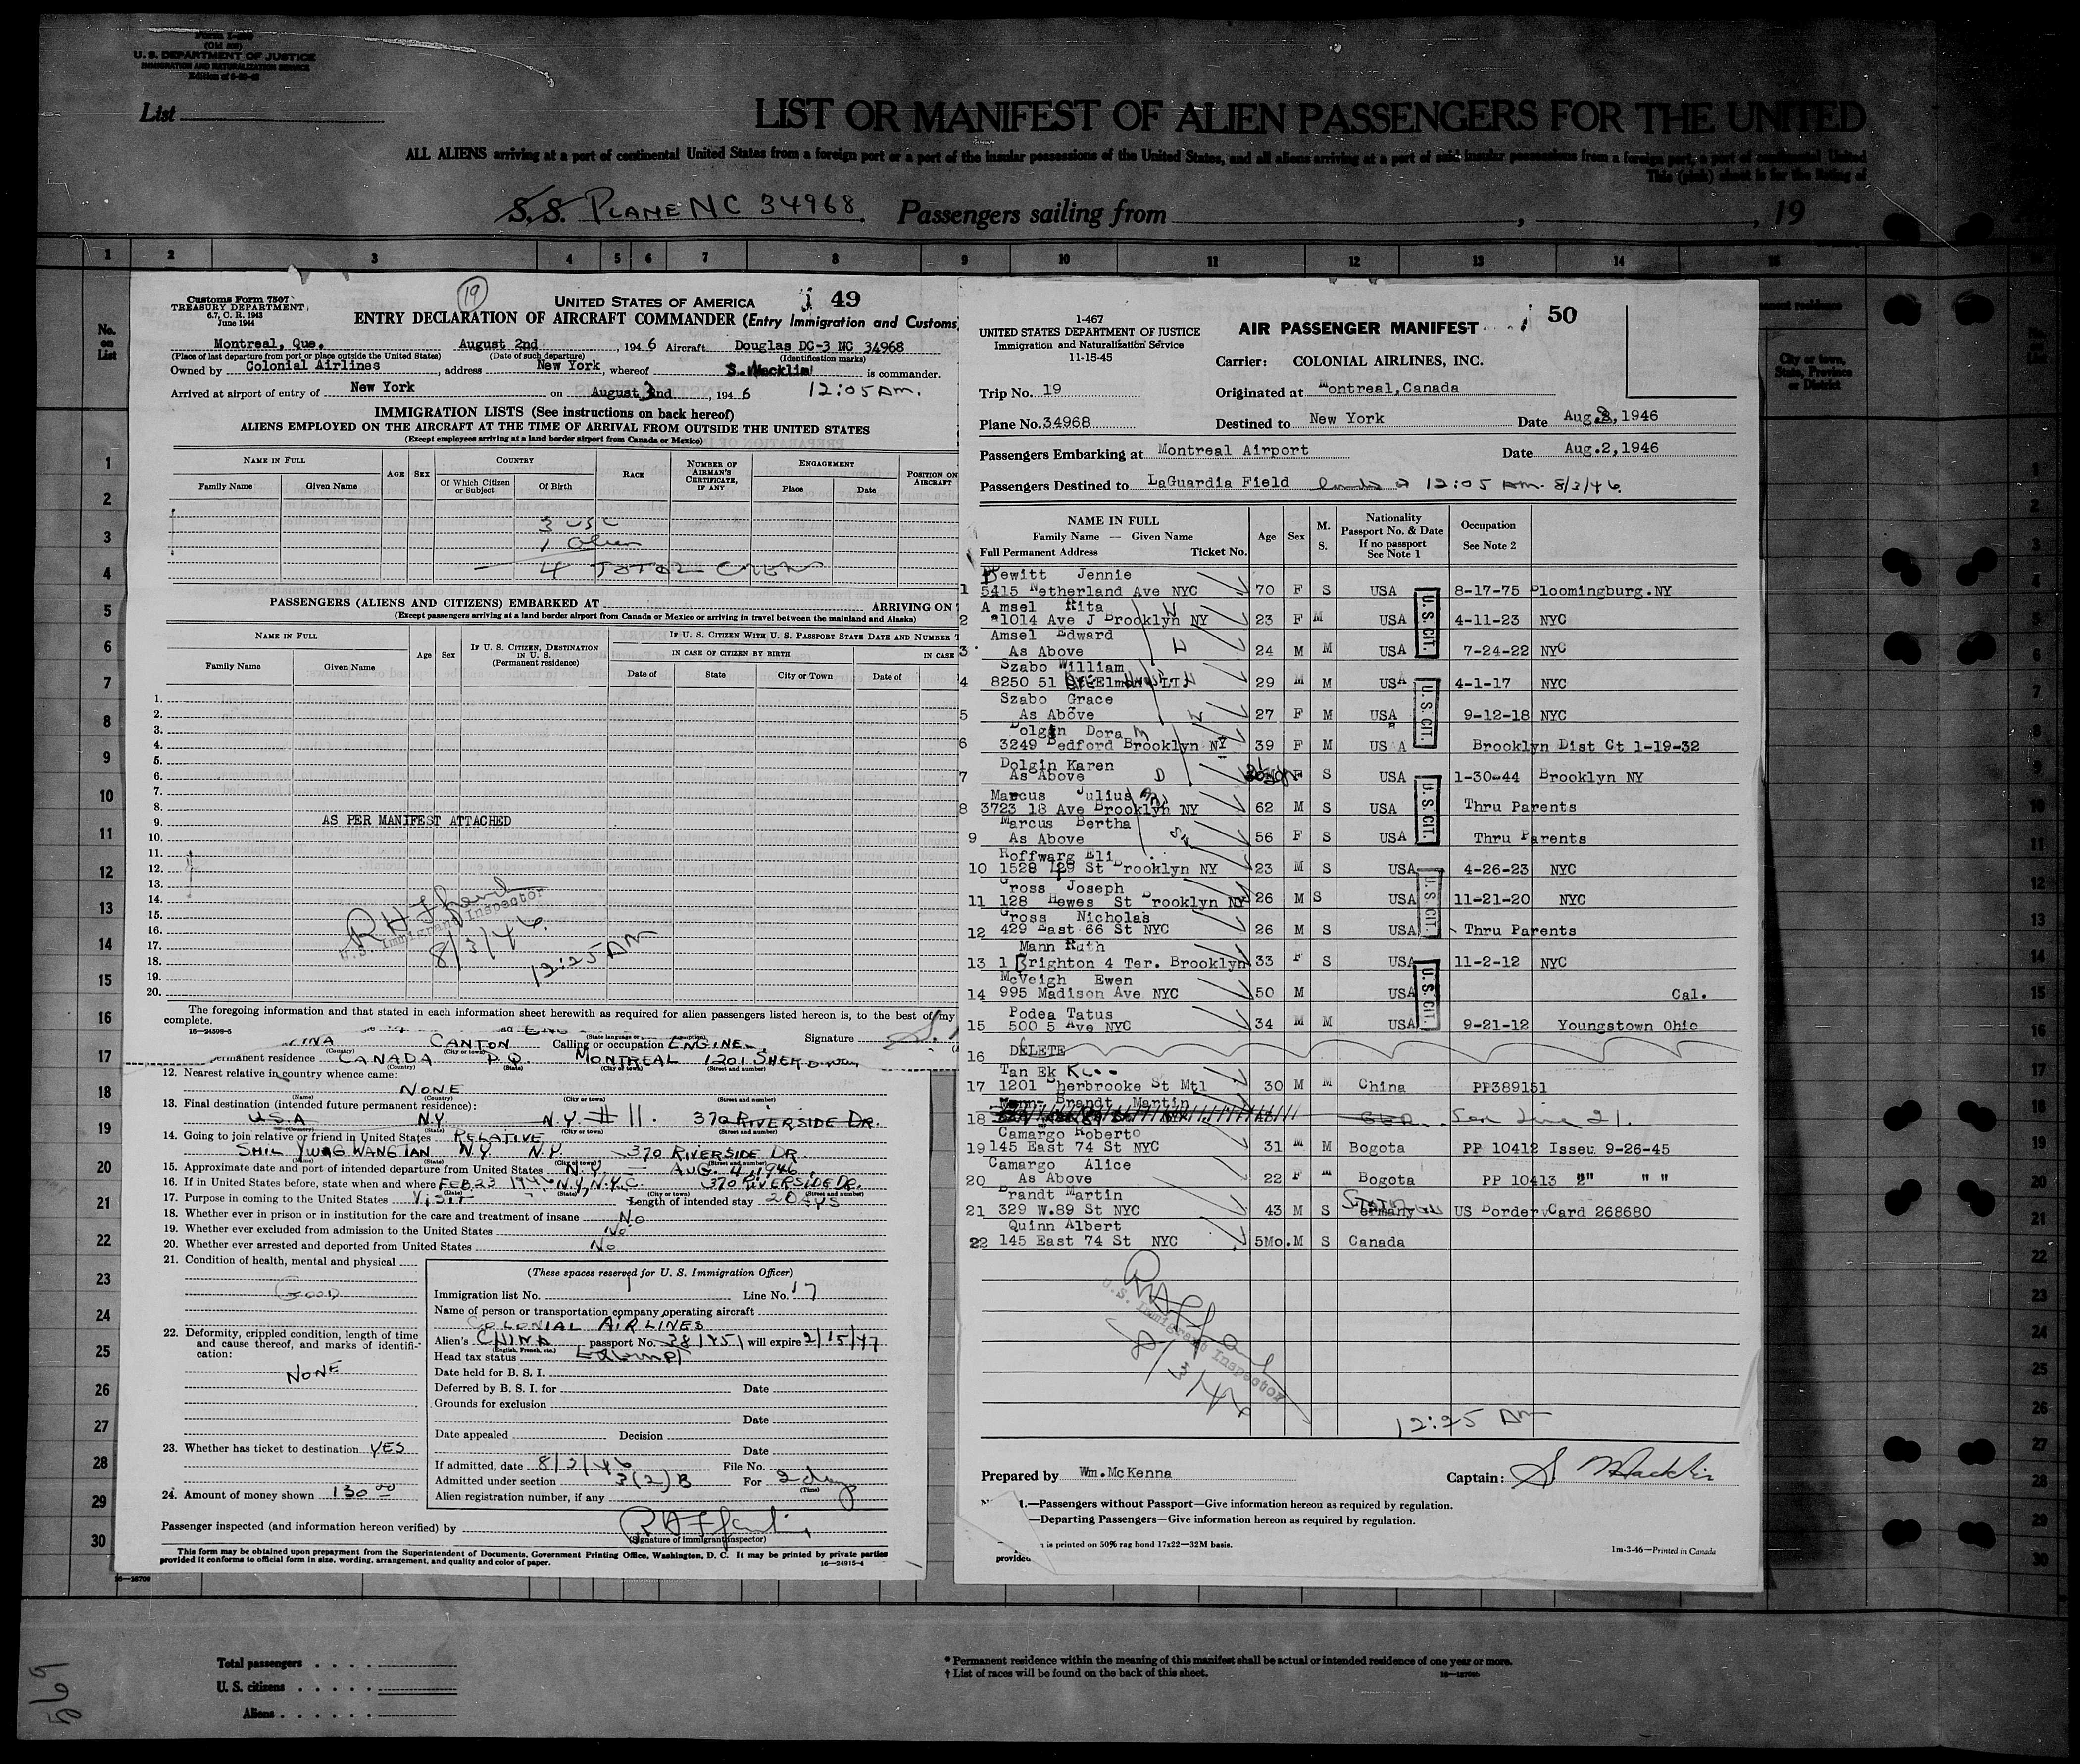 (Old 500)
U. S. DEPARTMENT OF JUSTICE
IMMIGRATION AND NATURALIZATION SERVICE
List
LIST OR MANIFEST OF ALIEN PASSENGERS FOR THE UNITED
ALL ALIENS arriving at a port of continental United States from a foreign port or a port of the insular possessions of the United States, and all aliens arriving at a port of said insular possessions from a foreign port, a port of continental United
This (pink) sheet is for the listing of
S.S. PLANE NC 34968 Passengers sailing from , , 19
1 2 3 4 5 6 7 8 9 10 11 12 13 14 15
No. on List
1
2
3
4
5
6
7
8
9
10
11
12
13
14
15
16
17
18
19
20
21
22
23
24
25
26
27
28
29
30
Customs Form 7507
TREASURY DEPARTMENT
6.7, C. R. 1943
June 1944
19
UNITED STATES OF AMERICA 49
ENTRY DECLARATION OF AIRCRAFT COMMANDER (Entry Immigration and Customs
Montreal, Que. August 2nd , 194 6 Aircraft Douglas DC-3 NC 34968
(Place of last departure from port or place outside the United States) (Date of such departure) (Identification marks)
Owned by Colonial Airlines , address New York , whereof S. Macklin is commander.
Arrived at airport of entry of New York on August 3nd , 194 6 12:05 AM.
IMMIGRATION LISTS (See instructions on back hereof)
ALIENS EMPLOYED ON THE AIRCRAFT AT THE TIME OF ARRIVAL FROM OUTSIDE THE UNITED STATES
(Except employees arriving at a land border airport from Canada or Mexico)
NAME IN FULL AGE SEX COUNTRY RACE NUMBER OF AIRMAN'S CERTIFICATE, IF ANY ENGAGEMENT POSITION ON AIRCRAFT
Family Name Given Name Of Which Citizen or Subject Of Birth Place Date
3 USC
1 Alien
4 TOTAL CREW
PASSENGERS (ALIENS AND CITIZENS) EMBARKED AT ARRIVING ON
(Except passengers arriving at a land border airport from Canada or Mexico or arriving in travel between the mainland and Alaska)
NAME IN FULL Age Sex IF U. S. CITIZEN, DESTINATION IN U. S. (Permanent residence) IF U. S. CITIZEN WITH U. S. PASSPORT STATE DATE AND NUMBER
IN CASE OF CITIZEN BY BIRTH IN CASE
Family Name Given Name Date of State City or Town Date of
1.
2.
3.
4.
5.
6.
7.
8.
9. AS PER MANIFEST ATTACHED
10.
11.
12.
13.
14.
15.
16.
17.
18.
19.
20.
U.S. Immigrant Inspector
8/3/46
12:25 AM
The foregoing information and that stated in each information sheet herewith as required for alien passengers listed hereon is, to the best of my
complete.
16—24508-5
Signature
CANTON Calling or occupation ENGINE
permanent residence CANADA P.Q. MONTREAL 1201 SHERBROOKE
(Country) (State) (City or town) (Street and number)
12. Nearest relative in country whence came:
NONE
(Name) (Country) (City or town) (Street and number)
13. Final destination (intended future permanent residence):
U.S.A N.Y. N.Y. # 11. 370 RIVERSIDE DR.
(Country) (State) (City or town) (Street and number)
14. Going to join relative or friend in United States RELATIVE
SHIL YUNG WANG TAN N.Y. N.Y. 370 RIVERSIDE DR
15. Approximate date and port of intended departure from United States N.Y. — AUG. 4, 1946
16. If in United States before, state when and where FEB 23 1946 N.Y, N.Y.C. 370 RIVERSIDE DR.
17. Purpose in coming to the United States VISIT Length of intended stay 2 DAYS
18. Whether ever in prison or in institution for the care and treatment of insane No
19. Whether ever excluded from admission to the United States No
20. Whether ever arrested and deported from United States No
21. Condition of health, mental and physical
GOOD
22. Deformity, crippled condition, length of time and cause thereof, and marks of identification:
NONE
23. Whether has ticket to destination YES
24. Amount of money shown 130 00
(These spaces reserved for U. S. Immigration Officer)
Immigration list No. 1 Line No. 17
Name of person or transportation company operating aircraft
COLONIAL AIRLINES
Alien's CHINA passport No. 38/1451 will expire 2/15/47
(English, French, etc.)
Head tax status Exempt
Date held for B. S. I.
Deferred by B. S. I. for Date
Grounds for exclusion
Date
Date appealed Decision
Date
If admitted, date 8/3/46 File No.
Admitted under section 3(2)B For 2 days
(Time)
Alien registration number, if any
Passenger inspected (and information hereon verified) by
(Signature of immigrant inspector)
This form may be obtained upon prepayment from the Superintendent of Documents, Government Printing Office, Washington, D. C. It may be printed by private parties
provided it conforms to official form in size, wording, arrangement, and quality and color of paper. 16—24915-4
1-467
UNITED STATES DEPARTMENT OF JUSTICE
Immigration and Naturalization Service
11-15-45
AIR PASSENGER MANIFEST 50
Carrier: COLONIAL AIRLINES, INC.
Trip No. 19 Originated at Montreal, Canada
Plane No. 34968 Destined to New York Date Aug.3, 1946
Passengers Embarking at Montreal Airport Date Aug.2, 1946
Passengers Destined to LaGuardia Field 12:05 AM. 8/3/46
NAME IN FULL
Family Name — Given Name
Full Permanent Address Ticket No.
Age Sex M. S. Nationality Passport No. & Date If no passport See Note 1 Occupation See Note 2
Dewitt Jennie
1 5415 Netherland Ave NYC 70 F S USA 8-17-75 Bloomingburg.NY
Amsel Rita
2 1014 Ave J Brooklyn NY 23 F M USA 4-11-23 NYC
Amsel Edward
3 As Above 24 M M USA 7-24-22 NYC
Szabo William
4 8250 51 Elm LI 29 M M USA 4-1-17 NYC
Szabo Grace
5 As Above 27 F M USA 9-12-18 NYC
Dolgin Dora
6 3249 Bedford Brooklyn NY 39 F M USA Brooklyn Dist Ct 1-19-32
Dolgin Karen
7 As Above F S USA 1-30-44 Brooklyn NY
Marcus Julius
8 3723 18 Ave Brooklyn NY 62 M S USA Thru Parents
Marcus Bertha
9 As Above 56 F S USA Thru Parents
Roffwarg Eli
10 1528 129 St Brooklyn NY 23 M S USA 4-26-23 NYC
Gross Joseph
11 128 Hewes St Brooklyn NY 26 M S USA 11-21-20 NYC
Gross Nicholas
12 429 East 66 St NYC 26 M S USA Thru Parents
Mann Ruth
13 1 Brighton 4 Ter. Brooklyn 33 F S USA 11-2-12 NYC
McVeigh Ewen
14 995 Madison Ave NYC 50 M USA Cal.
Podea Tatus
15 500 5 Ave NYC 34 M M USA 9-21-12 Youngstown Ohio
16 DELETE
Tan Ek
17 1201 Sherbrooke St Mtl 30 M M China PP389151
Brandt Martin
18 See Line 21.
Camargo Roberto
19 145 East 74 St NYC 31 M M Bogota PP 10412 Isseu 9-26-45
Camargo Alice
20 As Above 22 F M Bogota PP 10413 " " "
Brandt Martin
21 329 W.89 St NYC 43 M S Germany US Border Card 268680
Quinn Albert
22 145 East 74 St NYC 5Mo. M S Canada
U.S. CIT.
U.S. CIT.
U.S. CIT.
U.S. CIT.
U.S. CIT.
U.S. Immigrant Inspector
8/3/46
12:25 AM
Prepared by Wm. McKenna Captain: S Macklin
1.—Passengers without Passport—Give information hereon as required by regulation.
—Departing Passengers—Give information hereon as required by regulation.
is printed on 50% rag bond 17x22—32M basis.
provided
1m-3-46—Printed in Canada
City or town, State, Province or District
Total passengers
U. S. citizens
Aliens
* Permanent residence within the meaning of this manifest shall be actual or intended residence of one year or more.
† List of races will be found on the back of this sheet.
569